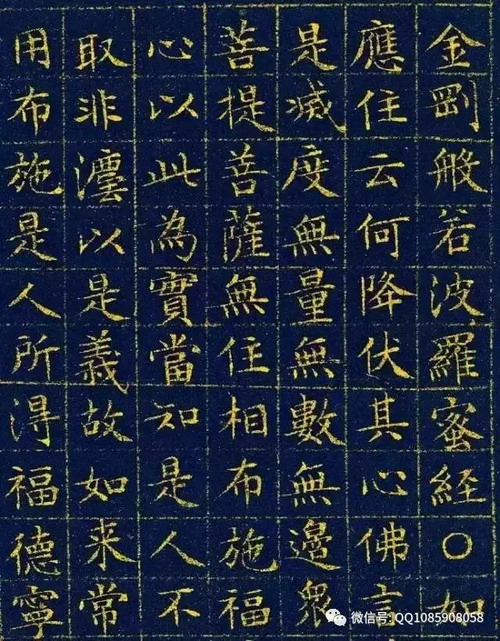 金剛般若波羅蜜経〇如
應住云何降伏其心佛言
是滅度無量無數無邊衆
菩提菩薩無住相布施福
心以此為實當知是人不
取非灋以是義故如来常
用布施是人所得福德寧
微信号: QQ1085908058